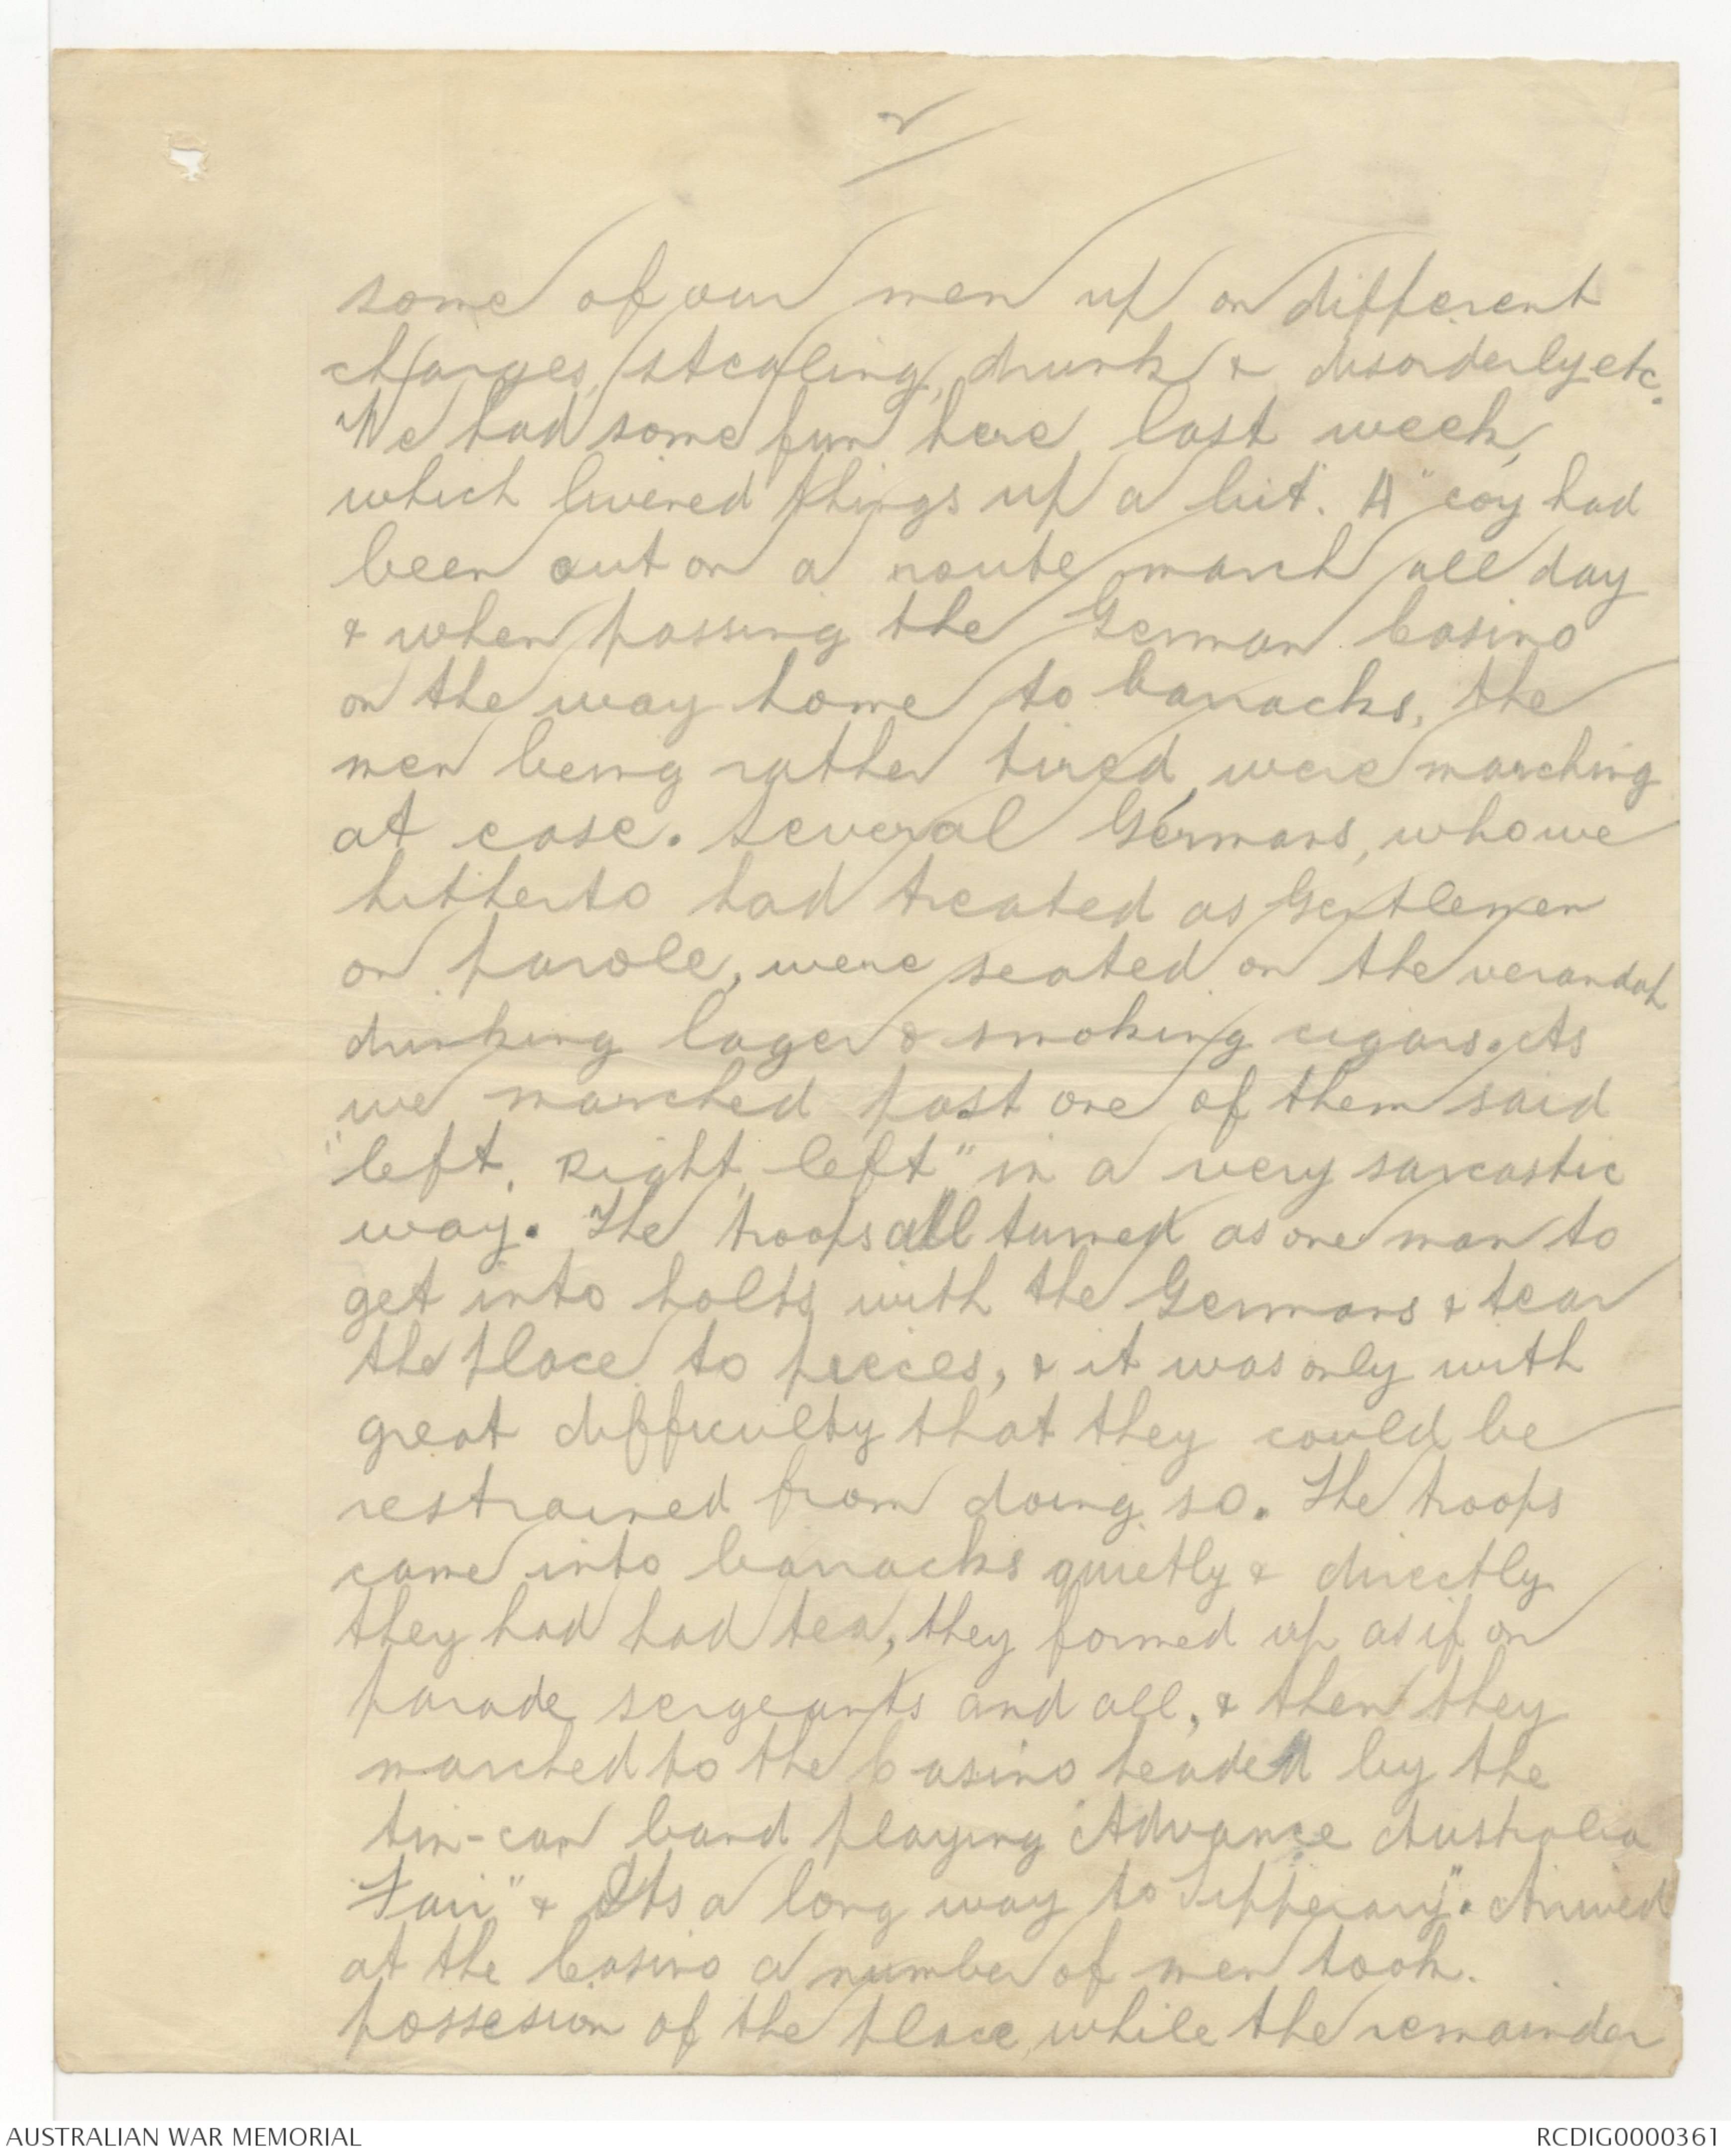 2
some of our men up on different
charges, stealing, drunk & disorderly etc.
We had some fun here last week,
which livened things up a bit. "A" coy had
been out on a route march all day
& when passing the German Casino
on the way home to barracks, the
men being rather tired, were marching
at ease. Several Germans, who we
hitherto had treated as Gentlemen
on parole, were seated on the verandah
drinking lager & smoking cigars. As
we marched past one of them said
"left, Right, left" in a very sarcastic
way. The troops all turned as one man to
get into holts with the Germans & tear
the place to pieces, & it was only with
great difficulty that they could be
restrained from doing so. The troops
came into barracks quietly & directly
they had had tea, they formed up as if on
parade sergeants and all, & then they
marched to the Casino headed by the
tin-can band playing "Advance Australia
Fair" & "Its a long way to Tipperary". Arrived
at the Casino a number of men took
possesion of the place, while the remainder
AUSTRALIAN WAR MEMORIAL
RCDIG0000361